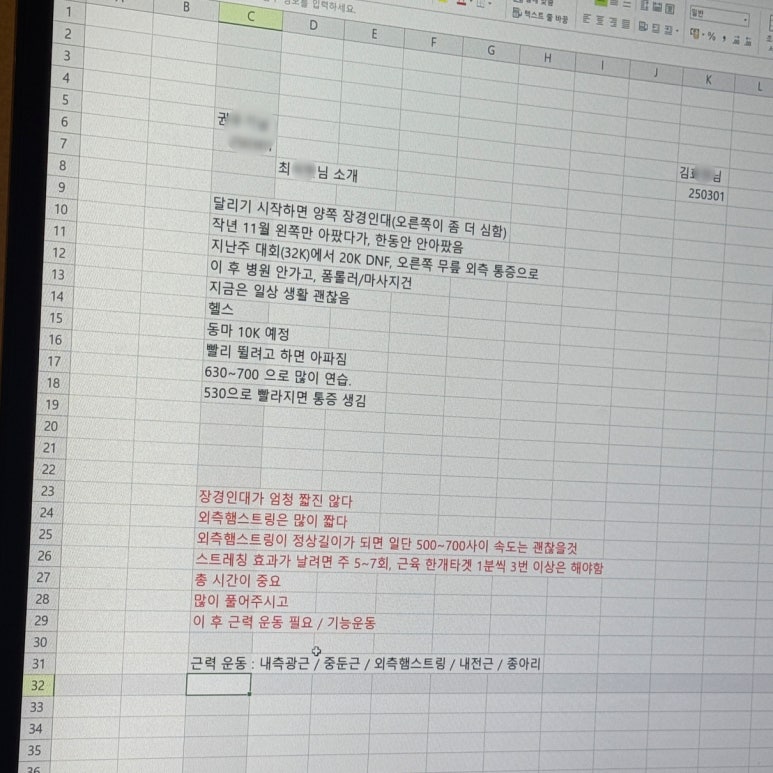 정보를 입력하세요.
텍스트 줄 바꿈
일반
B C D E F G H I J K L
1
2
3
4
5
6 권
7
8 최 님 소개 김 님
9 250301
10 달리기 시작하면 양쪽 장경인대(오른쪽이 좀 더 심함)
11 작년 11월 왼쪽만 아팠다가, 한동안 안아팠음
12 지난주 대회(32K)에서 20K DNF, 오른쪽 무릎 외측 통증으로
13 이 후 병원 안가고, 폼롤러/마사지건
14 지금은 일상 생활 괜찮음
15 헬스
16 동마 10K 예정
17 빨리 뛸려고 하면 아파짐
18 630~700 으로 많이 연습.
19 530으로 빨라지면 통증 생김
20
21
22
23 장경인대가 엄청 짧진 않다
24 외측햄스트링은 많이 짧다
25 외측햄스트링이 정상길이가 되면 일단 500~700사이 속도는 괜찮을것
26 스트레칭 효과가 날려면 주 5~7회, 근육 한개타겟 1분씩 3번 이상은 해야함
27 총 시간이 중요
28 많이 풀어주시고
29 이 후 근력 운동 필요 / 기능운동
30
31 근력 운동 : 내측광근 / 중둔근 / 외측햄스트링 / 내전근 / 종아리
32
33
34
35
36